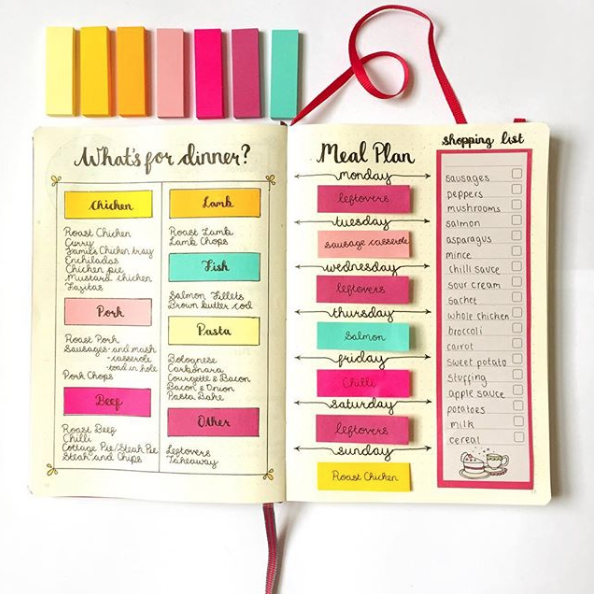 What's for dinner?
Chicken
Roast Chicken
Curry
James Chicken tray
Enchiladas
Chicken pie
Mustard chicken
Fajitas
Pork
Roast Pork
Sausages - and mash
- casserole
- toad in hole
Pork Chops
Beef
Roast Beef
Chilli
Cottage Pie/Steak Pie
Steak and Chips
Lamb
Roast Lamb
Lamb Chops
Fish
Salmon Fillets
Brown butter cod
Pasta
Bolognese
Carbonara
Courgette & Bacon
Bacon & Onion
Pasta Bake
Other
Leftovers
Takeaway
Meal Plan
monday
leftovers
tuesday
sausage casserole
wednesday
leftovers
thursday
Salmon
friday
Chilli
saturday
leftovers
sunday
Roast Chicken
shopping list
sausages
peppers
mushrooms
salmon
asparagus
mince
chilli sauce
sour cream
sachet
whole chicken
broccoli
carrot
sweet potato
stuffing
apple sauce
potatoes
milk
cereal